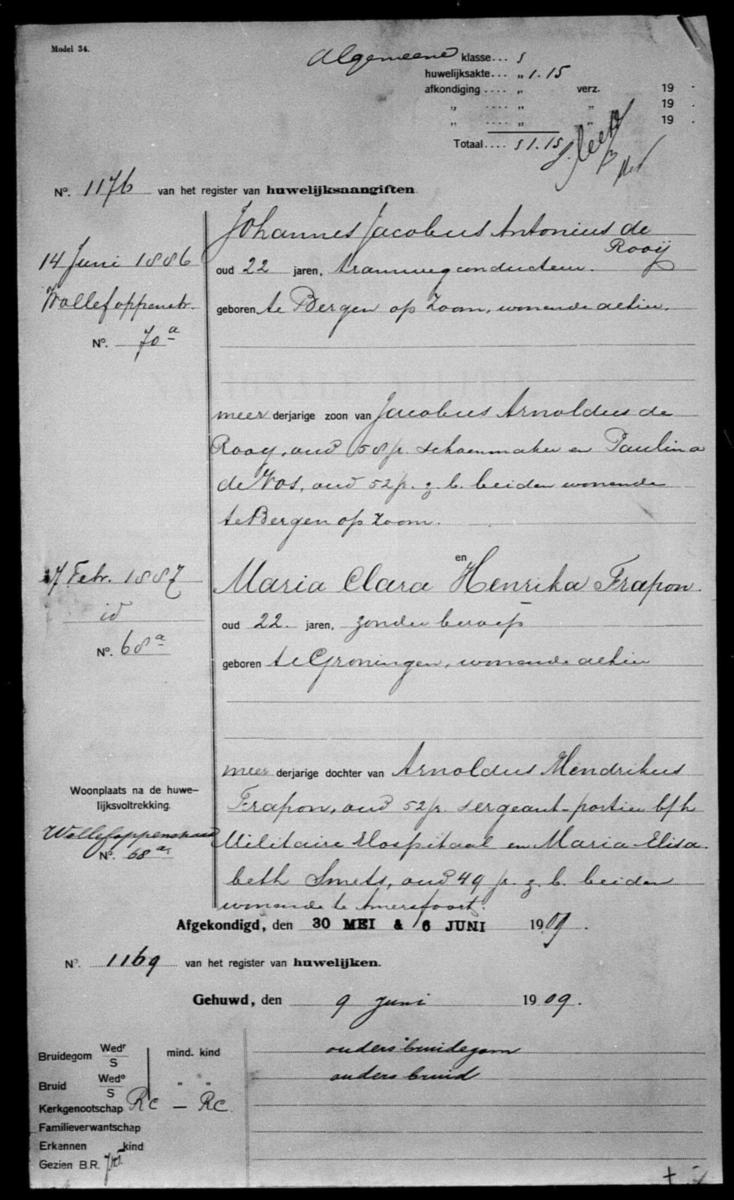 Model 34.
Algemeene klasse... 5
huwelijksakte... „ 1.15
afkondiging .... „ verz. 19 .
„ .... „ „ 19 .
„ .... „ „ 19 .
Totaal.... 5 1.15
No. 1176 van het register van huwelijksaangiften.
Johannes Jacobus Antonius de
Rooij
14 Juni 1886
oud 22 jaren, tramwegconducteur.
Wollefoppenstr.
geboren te Bergen op Zoom, wonende alhier.
No. 70a
meerderjarige zoon van Jacobus Arnoldus de
Rooy, oud 58 j. schoenmaker en Paulina
de Vos, oud 52 j. z. b. beiden wonende
te Bergen op Zoom.
en
7 Febr. 1887
Maria Clara Henrika Frapon.
id
oud 22 jaren, zonder beroep
No. 68a
geboren te Groningen, wonende alhier
meerderjarige dochter van Arnoldus Hendrikus
Woonplaats na de huwe-
lijksvoltrekking.
Frapon, oud 52 j. sergeant-portier b/h
Wollefoppenstraat
No. 68a
Militaire Hospitaal en Maria Elisa-
beth Smets, oud 49 j. z. b. beiden
wonende te Amersfoort.
Afgekondigd, den 30 MEI & 6 JUNI 1909.
No. 1169 van het register van huwelijken.
Gehuwd, den 9 Juni 1909.
Bruidegom Wedr/S mind. kind
ouders bruidegom
Bruid Wede/S „ „
ouders bruid
Kerkgenootschap RC – RC
Familieverwantschap
Erkennen kind
Gezien B.R.